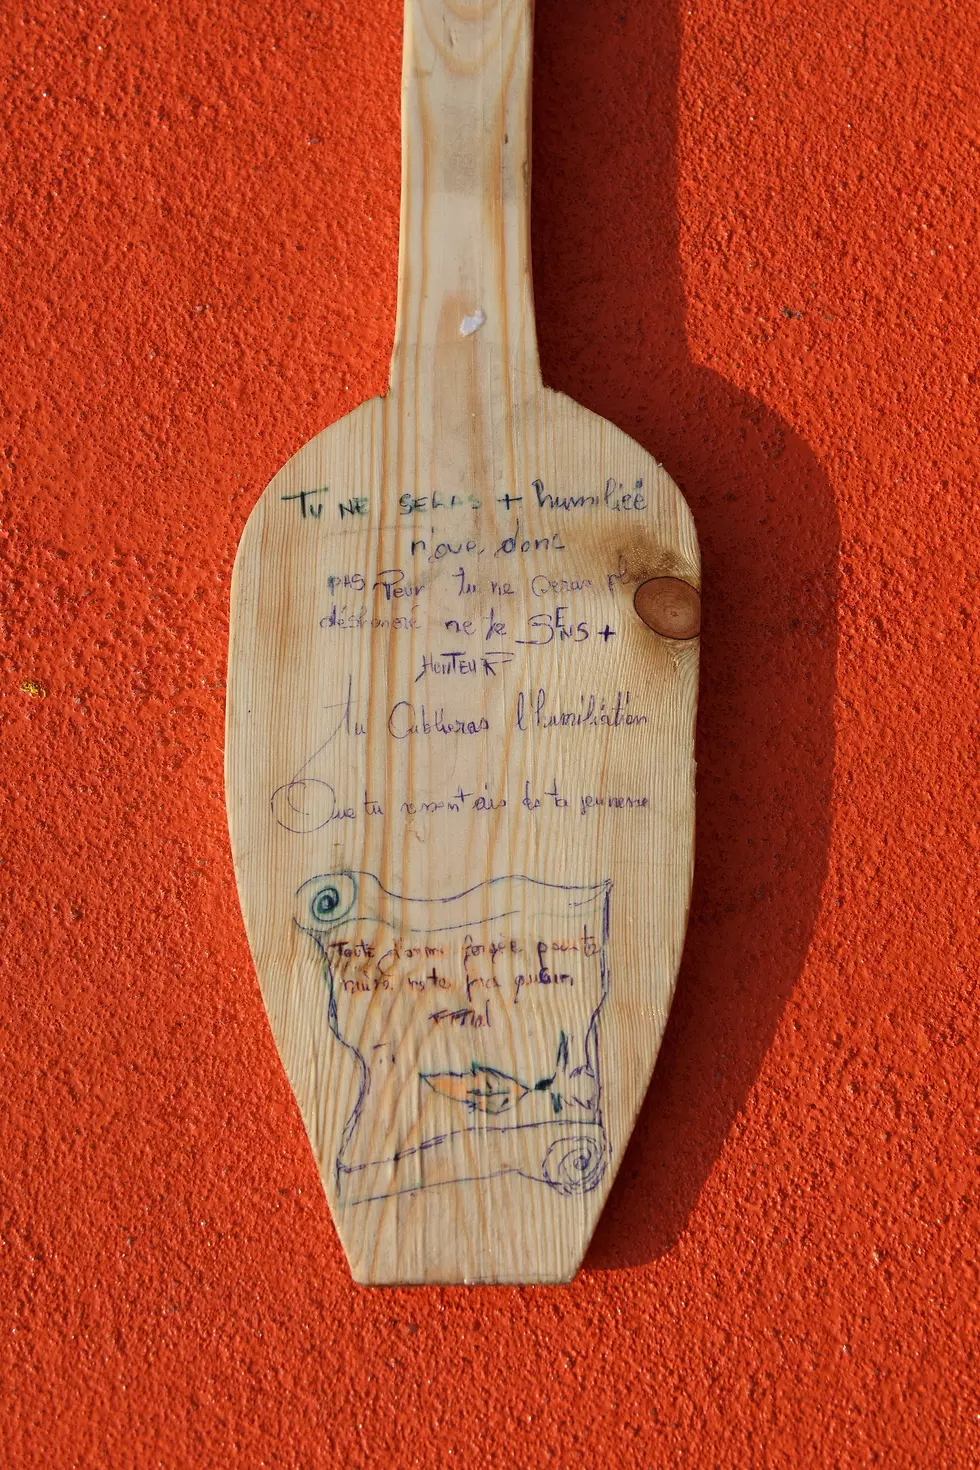 TU NE SERAS + humiliéé
n'aie donc
PAS Peur tu ne seras pl
déshonoré ne te SENS +
HONTEUR
tu Oublieras l'humiliation
Que tu ressentais de ta jeunesse
Toute d'arme forgée pour te
nuire